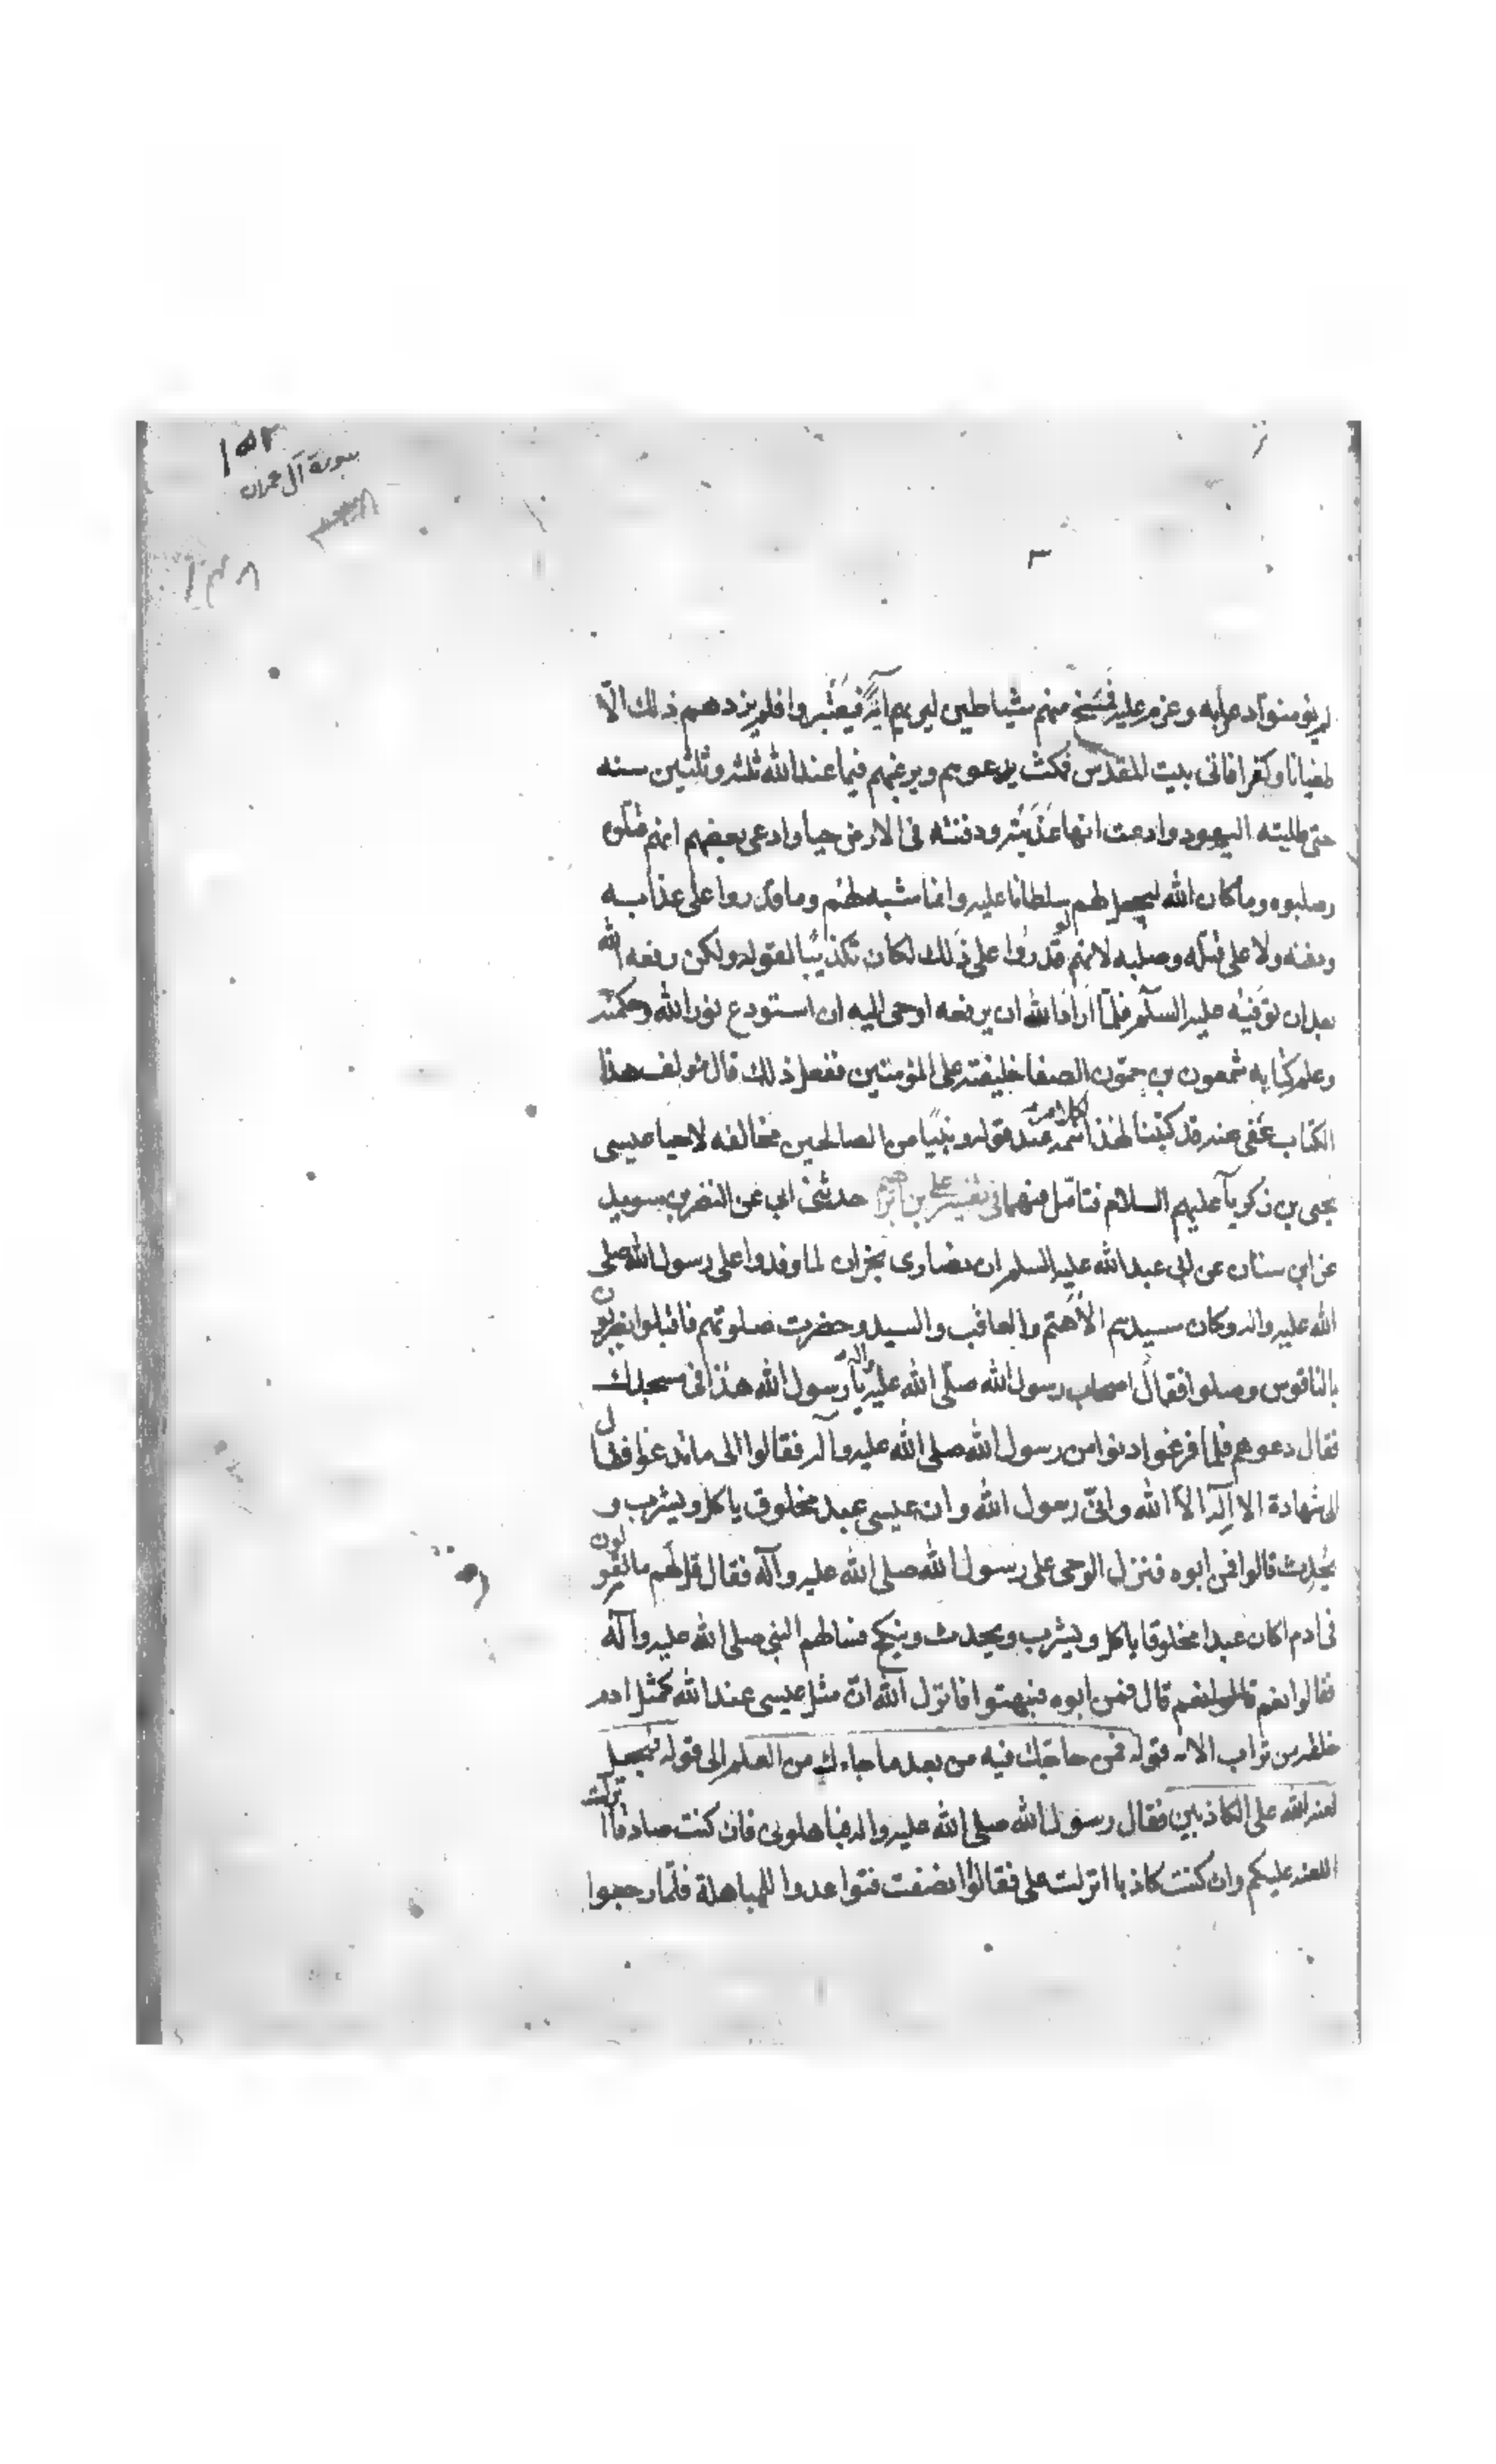 ١٥٢
سورة آل عمران
١٣٨
لم يؤمنوا دعا به وعزم عليه فمسخ منهم شياطين ليريهم آية فيعتبروا فلم يزدهم ذلك الّا
طغيانا وكفرا فاتى بيت المقدس فمكث يدعوهم ويرغبهم فيما عند الله ثلثة وثلثين سنه
حتى طلبته اليهود وادعت انها عذبته ودفنته فى الارض حيا وادعى بعضهم انهم قتلوه
وصلبوه وما كان الله ليجعل لهم سلطانا عليه وانما شبه لهم وما قدروا على عذابه
ودفنه ولا على قتله وصلبه لانهم لو قدروا على ذلك لكان تكذيبًا لقوله ولكن رفعه الله
بعد ان توفيه عليه السلم فلمّا اراد الله ان يرفعه اوحى اليه ان استودع نور الله وحكمته
وعلم كتابه شمعون بن حمّون الصفا خليفته على المؤمنين ففعل ذلك قال مؤلف هذا
الكتاب عفى عنه قد كتبنا لهذا كلام عند قوله ونبيًا من الصالحين مخالفه لاحيا عيسى
يحيى بن زكريا عليهم السلام فتامّل منهما فى تفسير على بن ابرهيم حدثنى ابى عن النضر بن سويد
عن ابن سنان عن ابى عبد الله عليه السلم ان نصارى نجران لما وفدوا على رسول الله صلى
الله عليه واله وكان سيدهم الاهتم والعاقب والسيد وحضرت صلوتهم فاقبلوا يضربون
بالناقوس وصلوا فقال اصحاب رسول الله صلّى الله عليه واله يا رسول الله هذا فى مسجدك
فقال دعوهم فلما فرغوا دنوا من رسول الله صلى الله عليه وآله فقالوا الى ما تدعوا فقال
الى شهادة الا اله الّا الله وانّى رسول الله وان عيسى عبد مخلوق ياكل ويشرب و
يُحدث قالوا فمن ابوه فنزل الوحى على رسول الله صلى الله عليه وآله فقال قل لهم ما تقولون
فى ادم اكان عبدا مخلوقا ياكل ويشرب ويحدث وينكح فسالهم النبى صلى الله عليه وآله
فقالوا نعم قال فمن ابوه فبهتوا فانزل الله انّ مثل عيسى عند الله كمثل ادم
خلقه من تراب الايه قوله فمن حاجّك فيه من بعد ما جاءك من العلم الى قوله فنجعل
لعنة الله على الكاذبين فقال رسول الله صلى الله عليه واله فباهلونى فان كنت صادقا انزلت
اللعنه عليكم وان كنت كاذبا انزلت على فقالوا انصفت فتواعدوا للمباهلة فلمّا رجعوا